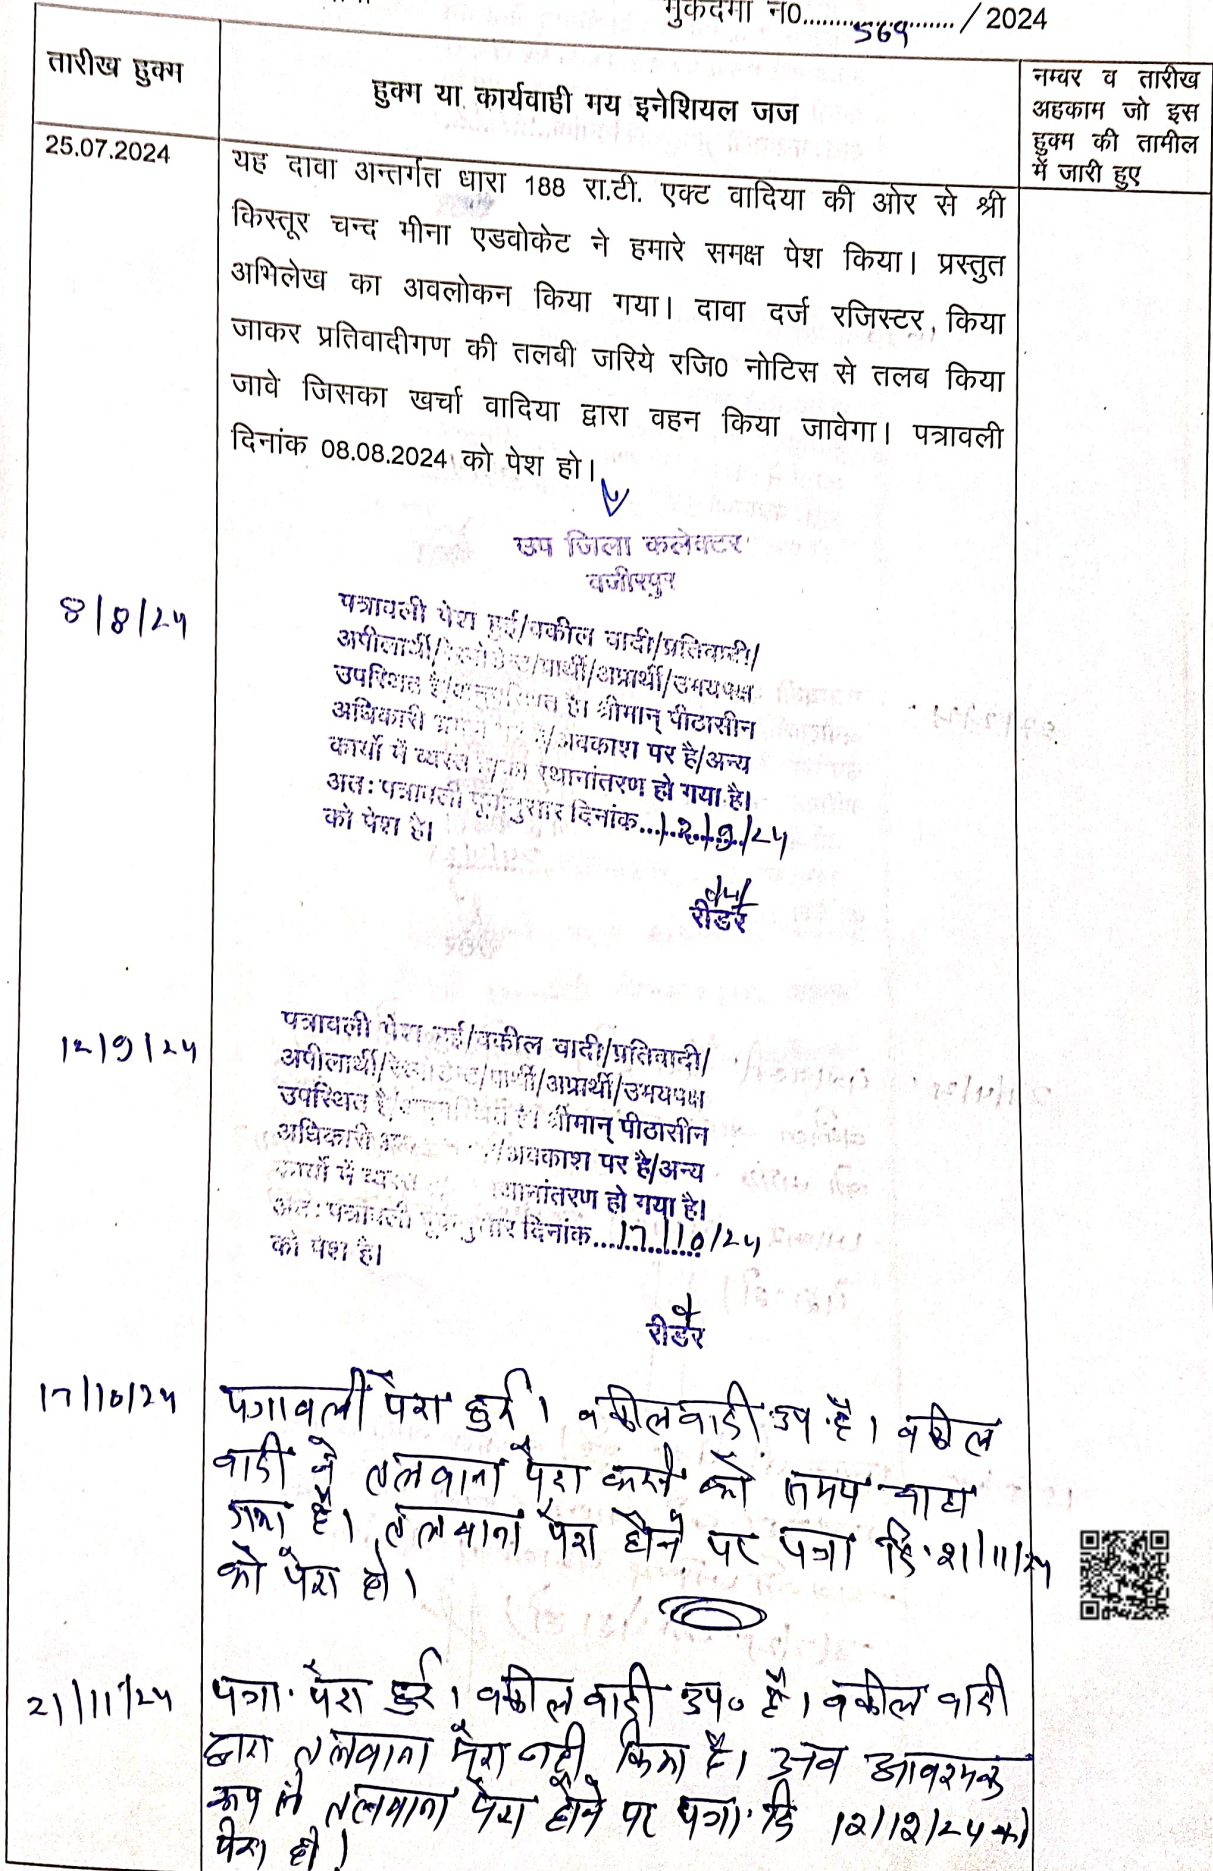 मुकदमा न0..................... / 2024
569
तारीख हुक्म
हुक्म या कार्यवाही मय इनेशियल जज
नम्बर व तारीख
अहकाम जो इस
हुक्म की तामील
में जारी हुए
25.07.2024
यह दावा अन्तर्गत धारा 188 रा.टी. एक्ट वादिया की ओर से श्री
किस्तूर चन्द मीना एडवोकेट ने हमारे समक्ष पेश किया। प्रस्तुत
अभिलेख का अवलोकन किया गया। दावा दर्ज रजिस्टर, किया
जाकर प्रतिवादीगण की तलबी जरिये रजि0 नोटिस से तलब किया
जावे जिसका खर्चा वादिया द्वारा वहन किया जावेगा। पत्रावली
दिनांक 08.08.2024 को पेश हो।
उप जिला कलेक्टर
वजीरपुर
8/8/24
पत्रावली पेश हुई/वकील वादी/प्रतिवादी/
अपीलार्थी/रेस्पोडेन्ट/प्रार्थी/अप्रार्थी/उभयपक्ष
उपस्थित है/अनुपस्थित है। श्रीमान् पीठासीन
अधिकारी /अवकाश पर है/अन्य
कार्यो में व्यस्त स्थानांतरण हो गया है।
अतः पत्रावली पूर्वानुसार दिनांक...12/9/24
को पेश है।
रीडर
12/9/24
पत्रावली पेश हुई/वकील वादी/प्रतिवादी/
अपीलार्थी/रेस्पोडेन्ट/प्रार्थी/अप्रार्थी/उभयपक्ष
उपस्थित है/अनुपस्थित है। श्रीमान् पीठासीन
अधिकारी /अवकाश पर है/अन्य
कार्यो में व्यस्त स्थानांतरण हो गया है।
अतः पत्रावली पूर्वानुसार दिनांक...17/10/24
को पेश है।
रीडर
17/10/24
पत्रावली पेश हुई। वकील वादी उप. है। वकील
वादी ने तलवाना पेश करने को समय चाहा
गया है। तलवाना पेश होने पर पत्रा दि. 21/11/24
को पेश हो।
21/11/24
पत्रा. पेश हुई। वकील वादी उप० है। वकील वादी
द्वारा तलवाना पेश नही किया है। अब आवश्यक
रूप से तलवाना पेश होने पर पत्रा. दि 12/12/24 को
पेश हो।